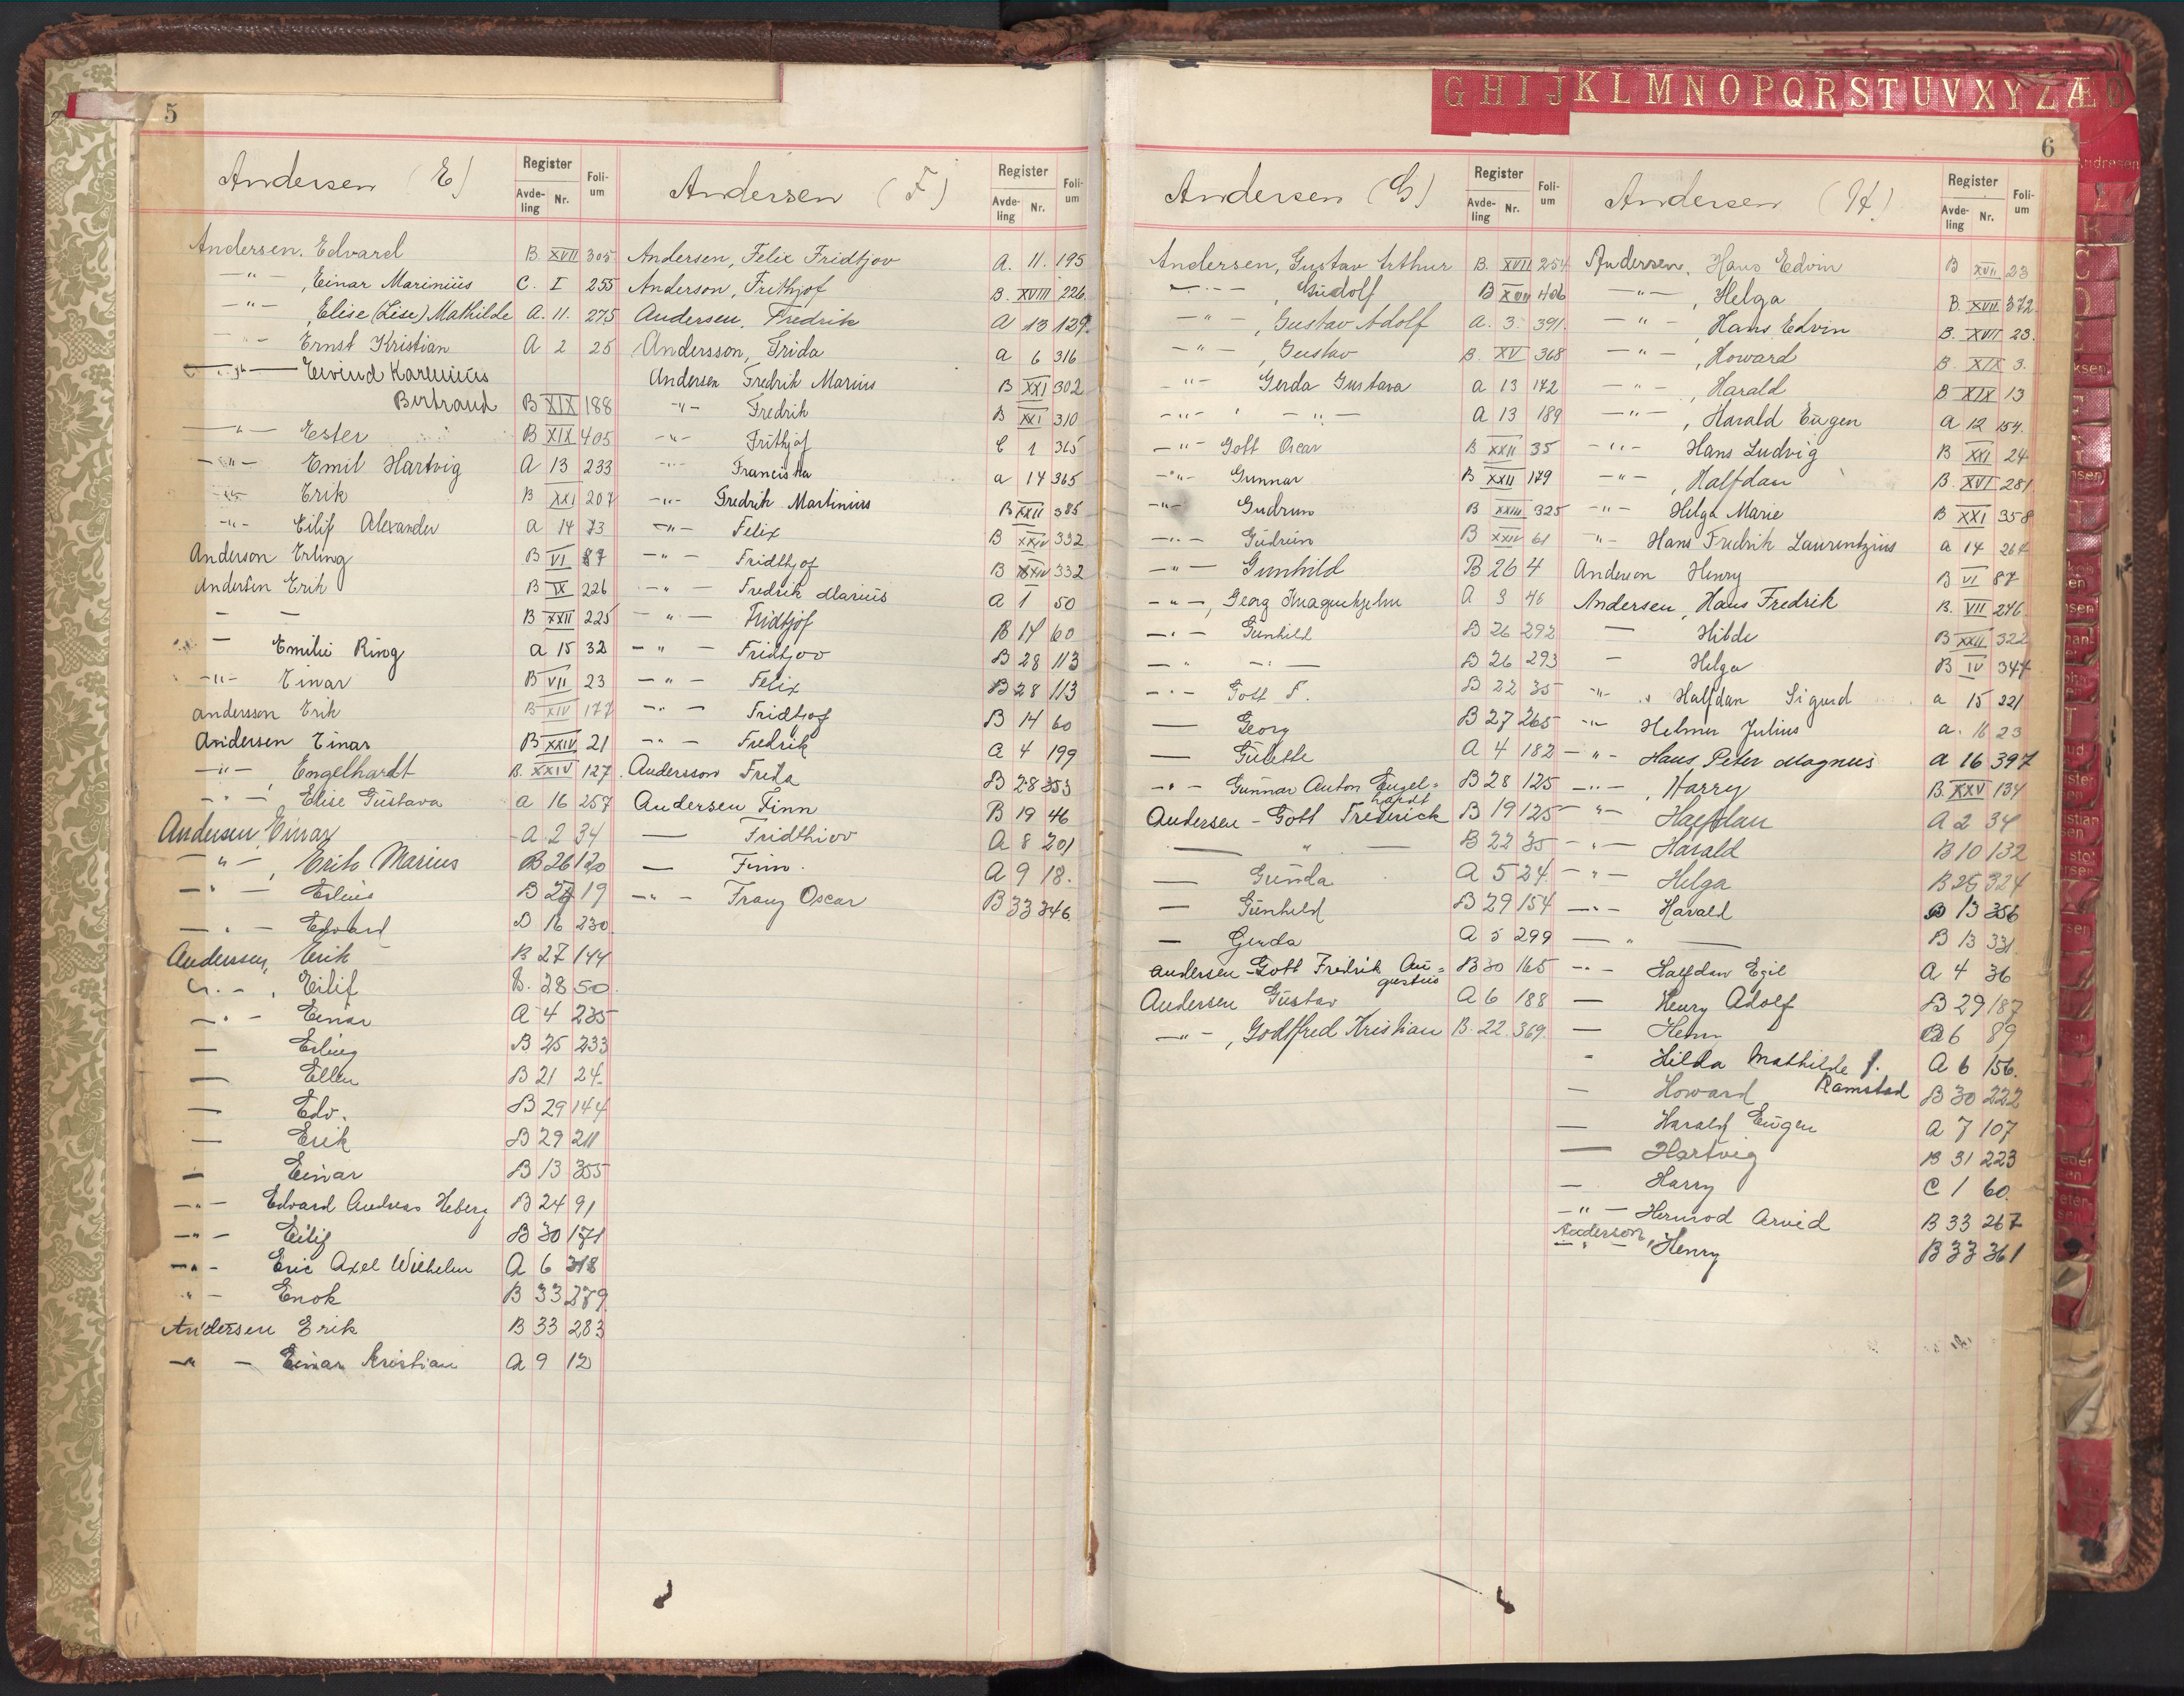 G H I J K L M N O P Q R S T U V X Y Z Æ Ø
5
Andersen (E)
Register
Avde-ling Nr.
Foli-um
Andersen. Edvard B XVII 305
—"— , Einar Marinius C. I 255
—"— , Elise (Lise) Mathilde A. 11. 275
—"— Ernst Kristian A 2 25
—"— Eivind Karenius
Bertrand B XIX 188
—"— Ester B XIX 405
—"— Emil Hartvig A 13 233
—"— Erik B XXI 207
—"— Eilif Alexander a 14 73
Anderson Erling B VI 87
Andersen Erik B IX 226
— — B XXII 225
— Emilie Ring a 15 32
—"— Einar B VII 23
andersson Erik B XIV 177
Andersen Einar B XXIV 21
—"— , Engelhardt B. XXIV 127
—"— , Elise Gustava a 16 257
Andersen, Einar A 2 34
—"— , Erik Marius B 26 120
—"— Erling B 28 19
—"— Edvard B 16 230
Andersen, Erik B 27 144
—"— , Eilif B. 28 50.
—"— Einar A 4 235
— Erling B 25 233
— Ellen B 21 24.
— Edv. B 29 144
— Erik B 29 211
— Einar B 13 355
—"— Edvard Andreas Heberg B 24 91
—"— Eilif B 30 171
—"— Eric Axel Wilhelm A 6 318
"— Enok B 33 279
Andersen Erik B 33 283
—"— Einar Kristian A 9 12
Andersen (F)
Register
Avde-ling Nr.
Foli-um
Andersen, Felix Fridtjov A. 11. 195
Anderson, Frithjof B. XVIII 226
Andersen, Fredrik A 13 129.
Andersson, Frida a 6 316
Andersen Fredrik Marius B XXI 302
—"— Fredrik B XXI 310
—"— Frithjof C 1 365
—"— Franciska a 14 365
—"— Fredrik Martinius B XXII 385
—"— Felix B XXIV 332
—"— Fridthjof B XXIV 332
—"— Fredrik Marius A 1 50
—"— Fridtjof B 14 60
—"— Fridtjov B 28 113
—"— Felix B 28 113
—"— Fridtjof B 14 60
—"— Fredrik A 4 199
Andersson Freda B 28 353
Andersen Finn B 19 46
— Fridthiov A 8 201
— Finn. A 9 18.
—"— Franz Oscar B 33 346.
6
Andersen (G)
Register
Avde-ling Nr.
Foli-um
Andersen, Gustav Arthur B. XVII 254
—"— , Gudolf B XVII 406
—"— , Gustav Adolf A. 3. 391.
—"— , Gustav B. XV 368
—"— Gerda Gustava a 13 142
—"— " —"— a 13 189
—"— Gott Oscar B XXII 35
—"— Gunnar B XXII 179
—"— Gudrun B XXIII 325
—"— Gudrun B XXIV 61
—"— Gunhild B 26 4
—"— , Georg A 3 46
—"— Gunhild B 26 292
—"— —"— B 26 293
—"— Gott F. B 22 35
— Georg B 27 265
— Gulette A 4 182
—"— Gunnar Anton Engel=
hardt B 28 125
Andersen - Gott Frederick B 19 125
— " — B 22 35
— Gunda A 5 24.
— Gunhild B 29 154
— Gerda A 5 299
andersen - Gott Fredrik Au=
gustus B 30 165
Andersen Gustav A 6 188
—"— , Godtfred Kristian B. 22. 369.
Andersen (H.)
Register
Avde-ling Nr.
Foli-um
Andersen, Hans Edvin B XVII 23
—"— , Helga B. XVII 372.
—"— , Hans Edvin B. XVII 23.
—"— , Howard B. XIX 3.
—"— , Harald B XIX 13
—"— , Harald Eugen A 12 154.
—"— Hans Ludvig B XXI 24
—"— , Halfdan B. XVI 281
—"— Helga Marie B XXI 358
"— Hans Fredrik Laurentzius a 14 267
Anderson Henry B VI 87
Andersen, Hans Fredrik B. VII 246
— Hilde B XXII 322
— Helga B IV 347
—"— Halfdan Sigurd a 15 221
—"— Helmer Julius a. 16 23
—"— Hans Peter Magnus a 16 397
—"— , Harry B. XXV 134
—"— Halfdan A 2 34
—"— Harald B 10 132
—"— Helga B 25 324
—"— Harald B 13 356
— " — B 13 331.
—"— Halfdan Egil A 4 36
— Henry Adolf B 29 187
— Henry B 6 89
" Hilda Mathilde f. A 6 156.
Ramstad
— Howard B 30 222
— Harald Eugen A 7 107
— Hartvig B 31 223
— Harry C 1 60.
—"— Hermod Arvid B 33 267
Anderson
—"— , Henry B 33 361